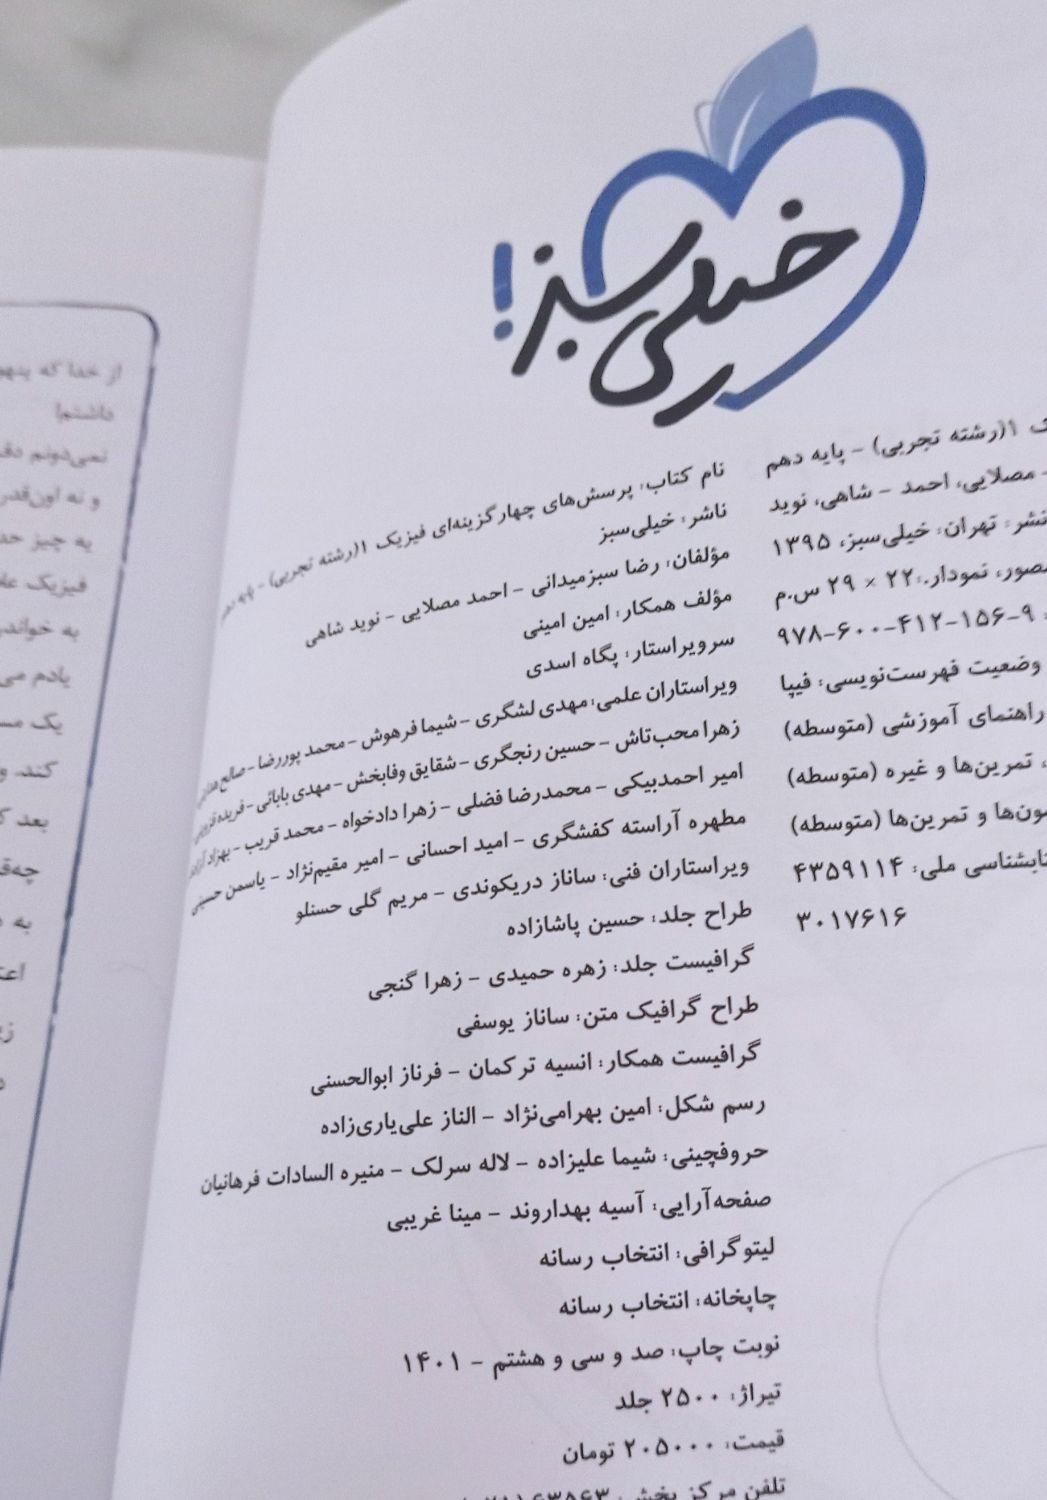 خیلی سبز!
ک ۱(رشته تجربی) - پایه دهم
- مصلایی، احمد - شاهی، نوید
نشر: تهران: خیلی‌سبز، ۱۳۹۵
مصور، نمودار.؛ ۲۲ × ۲۹ س.م
۹۷۸-۶۰۰-۴۱۲-۱۵۶-۹
وضعیت فهرست‌نویسی: فیپا
راهنمای آموزشی (متوسطه)
، تمرین‌ها و غیره (متوسطه)
مون‌ها و تمرین‌ها (متوسطه)
تابشناسی ملی: ۴۳۵۹۱۱۴
۳۰۱۷۶۱۶
نام کتاب: پرسش‌های چهارگزینه‌ای فیزیک ۱(رشته تجربی) - پایه دهم
ناشر: خیلی‌سبز
مؤلفان: رضا سبزمیدانی - احمد مصلایی - نوید شاهی
مؤلف همکار: امین امینی
سرویراستار: پگاه اسدی
ویراستاران علمی: مهدی لشگری - شیما فرهوش - محمد پوررضا - صالح
زهرا محب‌تاش - حسین رنجگری - شقایق وفابخش - مهدی بابائی - فریده
امیر احمدبیکی - محمدرضا فضلی - زهرا دادخواه - محمد قریب - بهزاد
مطهره آراسته کفشگری - امید احسانی - امیر مقیم‌نژاد - یاسمن حسینی
ویراستاران فنی: ساناز دریکوندی - مریم گلی حسنلو
طراح جلد: حسین پاشازاده
گرافیست جلد: زهره حمیدی - زهرا گنجی
طراح گرافیک متن: ساناز یوسفی
گرافیست همکار: انسیه ترکمان - فرناز ابوالحسنی
رسم شکل: امین بهرامی‌نژاد - الناز علی‌یاری‌زاده
حروفچینی: شیما علیزاده - لاله سرلک - منیره السادات فرهانیان
صفحه‌آرایی: آسیه بهداروند - مینا غریبی
لیتوگرافی: انتخاب رسانه
چاپخانه: انتخاب رسانه
نوبت چاپ: صد و سی و هشتم - ۱۴۰۱
تیراژ: ۲۵۰۰ جلد
قیمت: ۲۰۵۰۰۰ تومان
تلفن مرکز پخش:
از خدا که پنهو
داشتم!
نمی‌دونم دق
و نه اون‌قدر
یه چیز حد
فیزیک علا
به خواندن
یادم می
یک مس
کند. و
بعد ک
چه‌ق
به
اعت